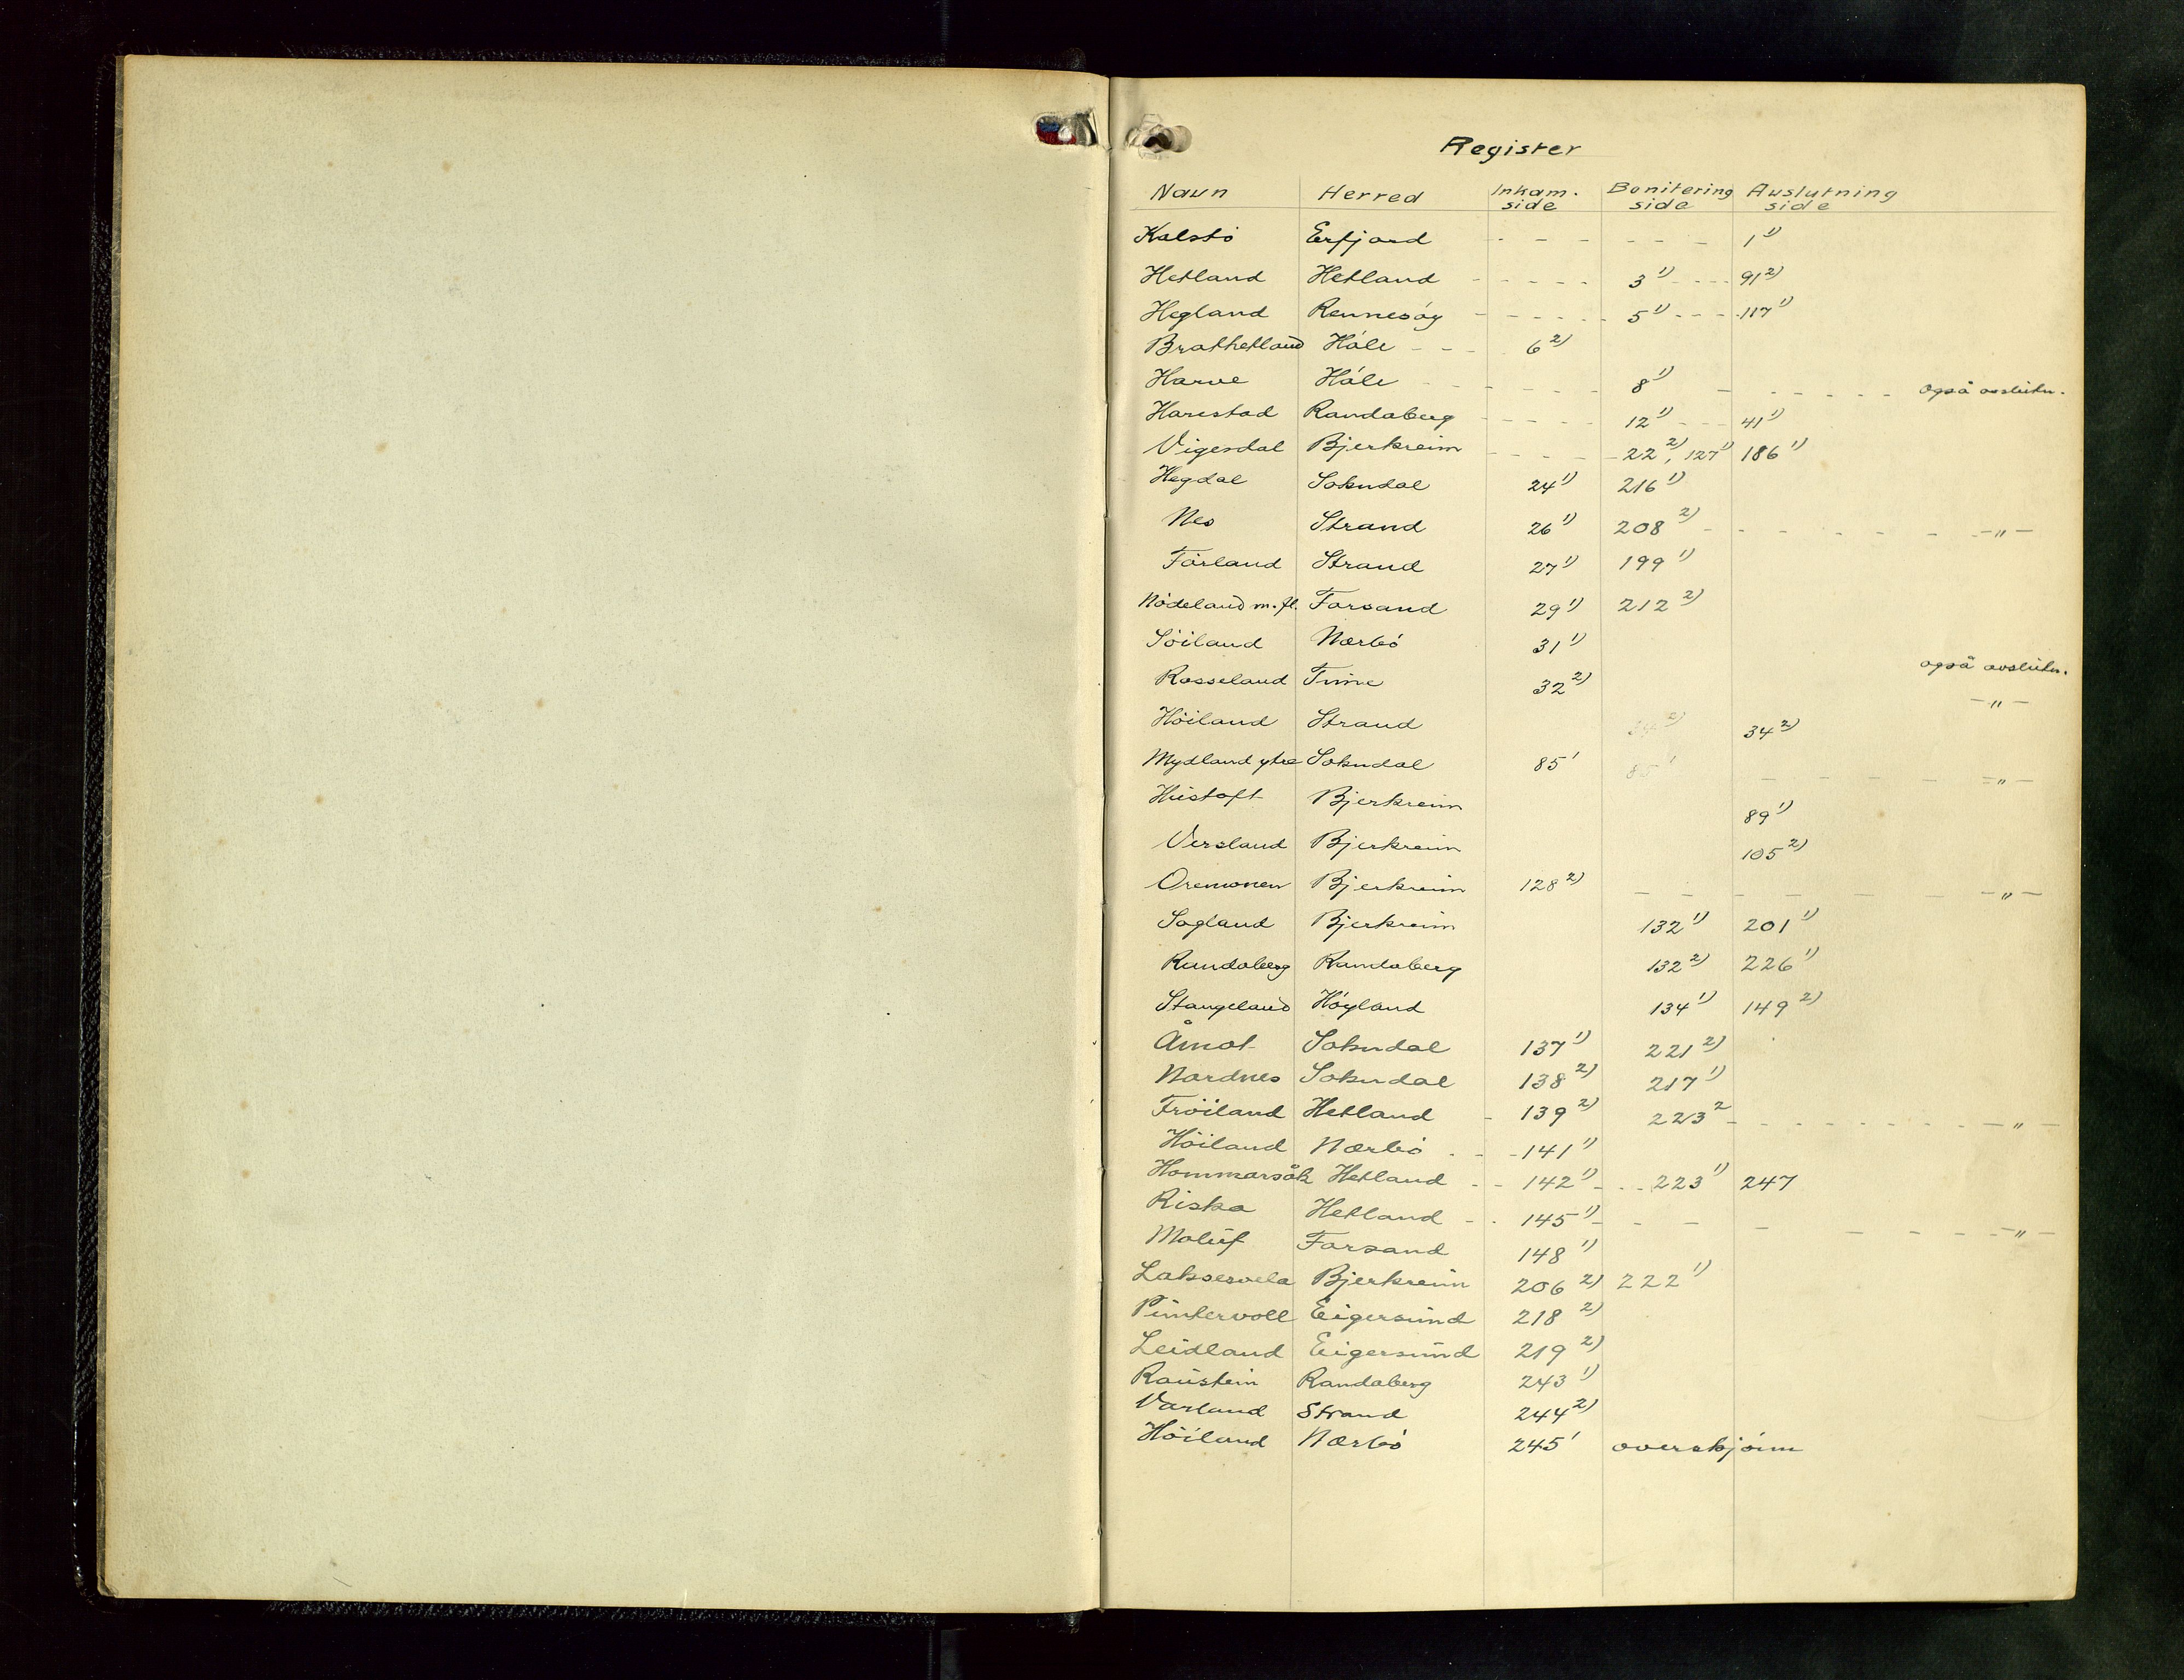 Register
Navn Herred Inkam. side Bonitering side Avslutning side
Kalstö Erfjord - - - - - - 1 1)
Hetland Hetland - - - - - 3 1) - - - - 91 2)
Hegland Rennesöy - - - - - 5 1) - - - 117 1)
Brathetland Håle - - - 6 2)
Harve Håle - - - - - 8 1) - - - - - - Også avslutn.
Harestad Randaberg - - - - - 12 1) - - - 41 1)
Vigesdal Bjerkreim - - - - - 22 2), 127 1) 186 1)
Hegdal Sokndal 24 1) 216 1)
Nes Strand 26 1) 208 2) - - - - - - - - " -
Förland Strand 27 1) 199 1)
Nödeland m. fl. Forsand 29 1) 212 2)
Söiland Nærbö 31 1)
Rosseland Time 32 2) også avslutn.
Höiland Strand 34 2) 34 2) - " -
Mydland ytre Sokndal 85 1 85 1 - - - - - - - " -
Hustoft Bjerkreim 89 1)
Versland Bjerkreim 105 2)
Oremonen Bjerkreim 128 2) - - - - - - - " -
Sagland Bjerkreim 132 1) 201 1)
Randaberg Randaberg 132 2) 226 1)
Stangeland Höyland 134 1) 149 2)
Åmot Sokndal 137 1) 221 2)
Nordnes Sokndal 138 2) 217 1)
Fröiland Hetland - 139 2) 223 2 - - - - - - - - - " -
Höiland Nærbö - - - 141 1)
Hommarsåk Hetland - - 142 1) - - - 223 1) 247
Riska Hetland - - 145 1) - - - - - - - - " -
Moluf Forsand 148 1)
Laksesvela Bjerkreim 206 2) 222 1)
Puntervoll Eigersund 218 2)
Leidland Eigersund 219 2)
Raustein Randaberg 243 1)
Varland Strand 244 2)
Höiland Nærbö 245 1 overskjönn